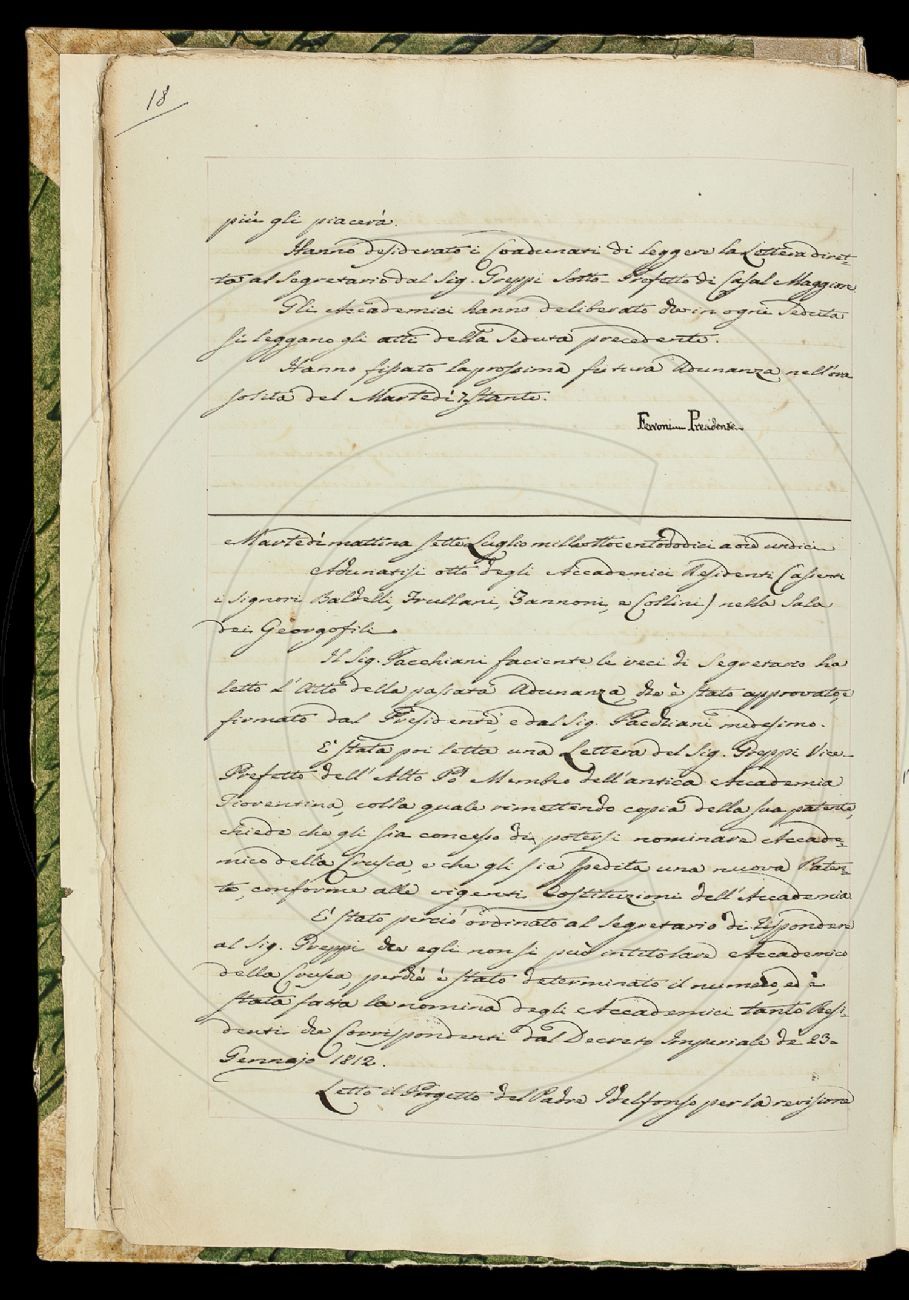 18
più gli piacerà.
Hanno desiderato i Coadunati di leggere la Lettera diret-
ta al Segretario dal Sig. Greppi Sotto-Prefetto di Casal Maggiore
Gli Accademici hanno deliberato che in ogni Seduta
si leggano gli atti della Seduta precedente.
Hanno fissato la prossima futura Adunanza nell'ora
solita del Martedì 7 stante.
Ferroni Presidente
Martedì mattina sette Luglio mille ottocentododici a ore undici
Adunatisi otto degli Accademici Residenti (assenti
i Signori Baldelli, Frullani, Zannoni, e Collini) nella Sala
dei Georgofili.
Il Sig. Pacchiani facente le veci di Segretario ha
letto l'Atto della passata Adunanza, che è stato approvato, e
firmato dal Presidente, e dal Sig. Pacchiani medesimo.
È stata poi letta una Lettera del Sig. Greppi Vice-
Prefetto dell'Alto Pò Membro dell'antica Accademia
Fiorentina, colla quale rimettendo copia della sua patente,
chiede che gli sia concesso di potersi nominare Accade-
mico della Crusca, e che gli sia spedita una nuova Paten-
te, conforme alle vigenti Costituzioni dell'Accademia
È stato perciò ordinato al Segretario di rispondere
al Sig. Greppi che egli non si può intitolare Accademico
della Crusca, perchè è stato determinato il numero, ed è
stata fatta la nomina degli Accademici tanto Resi-
denti che Corrispondenti dal Decreto Imperiale de 23
Gennajo 1812.
Letto il Progetto del Padre Idelfonso per la revisione